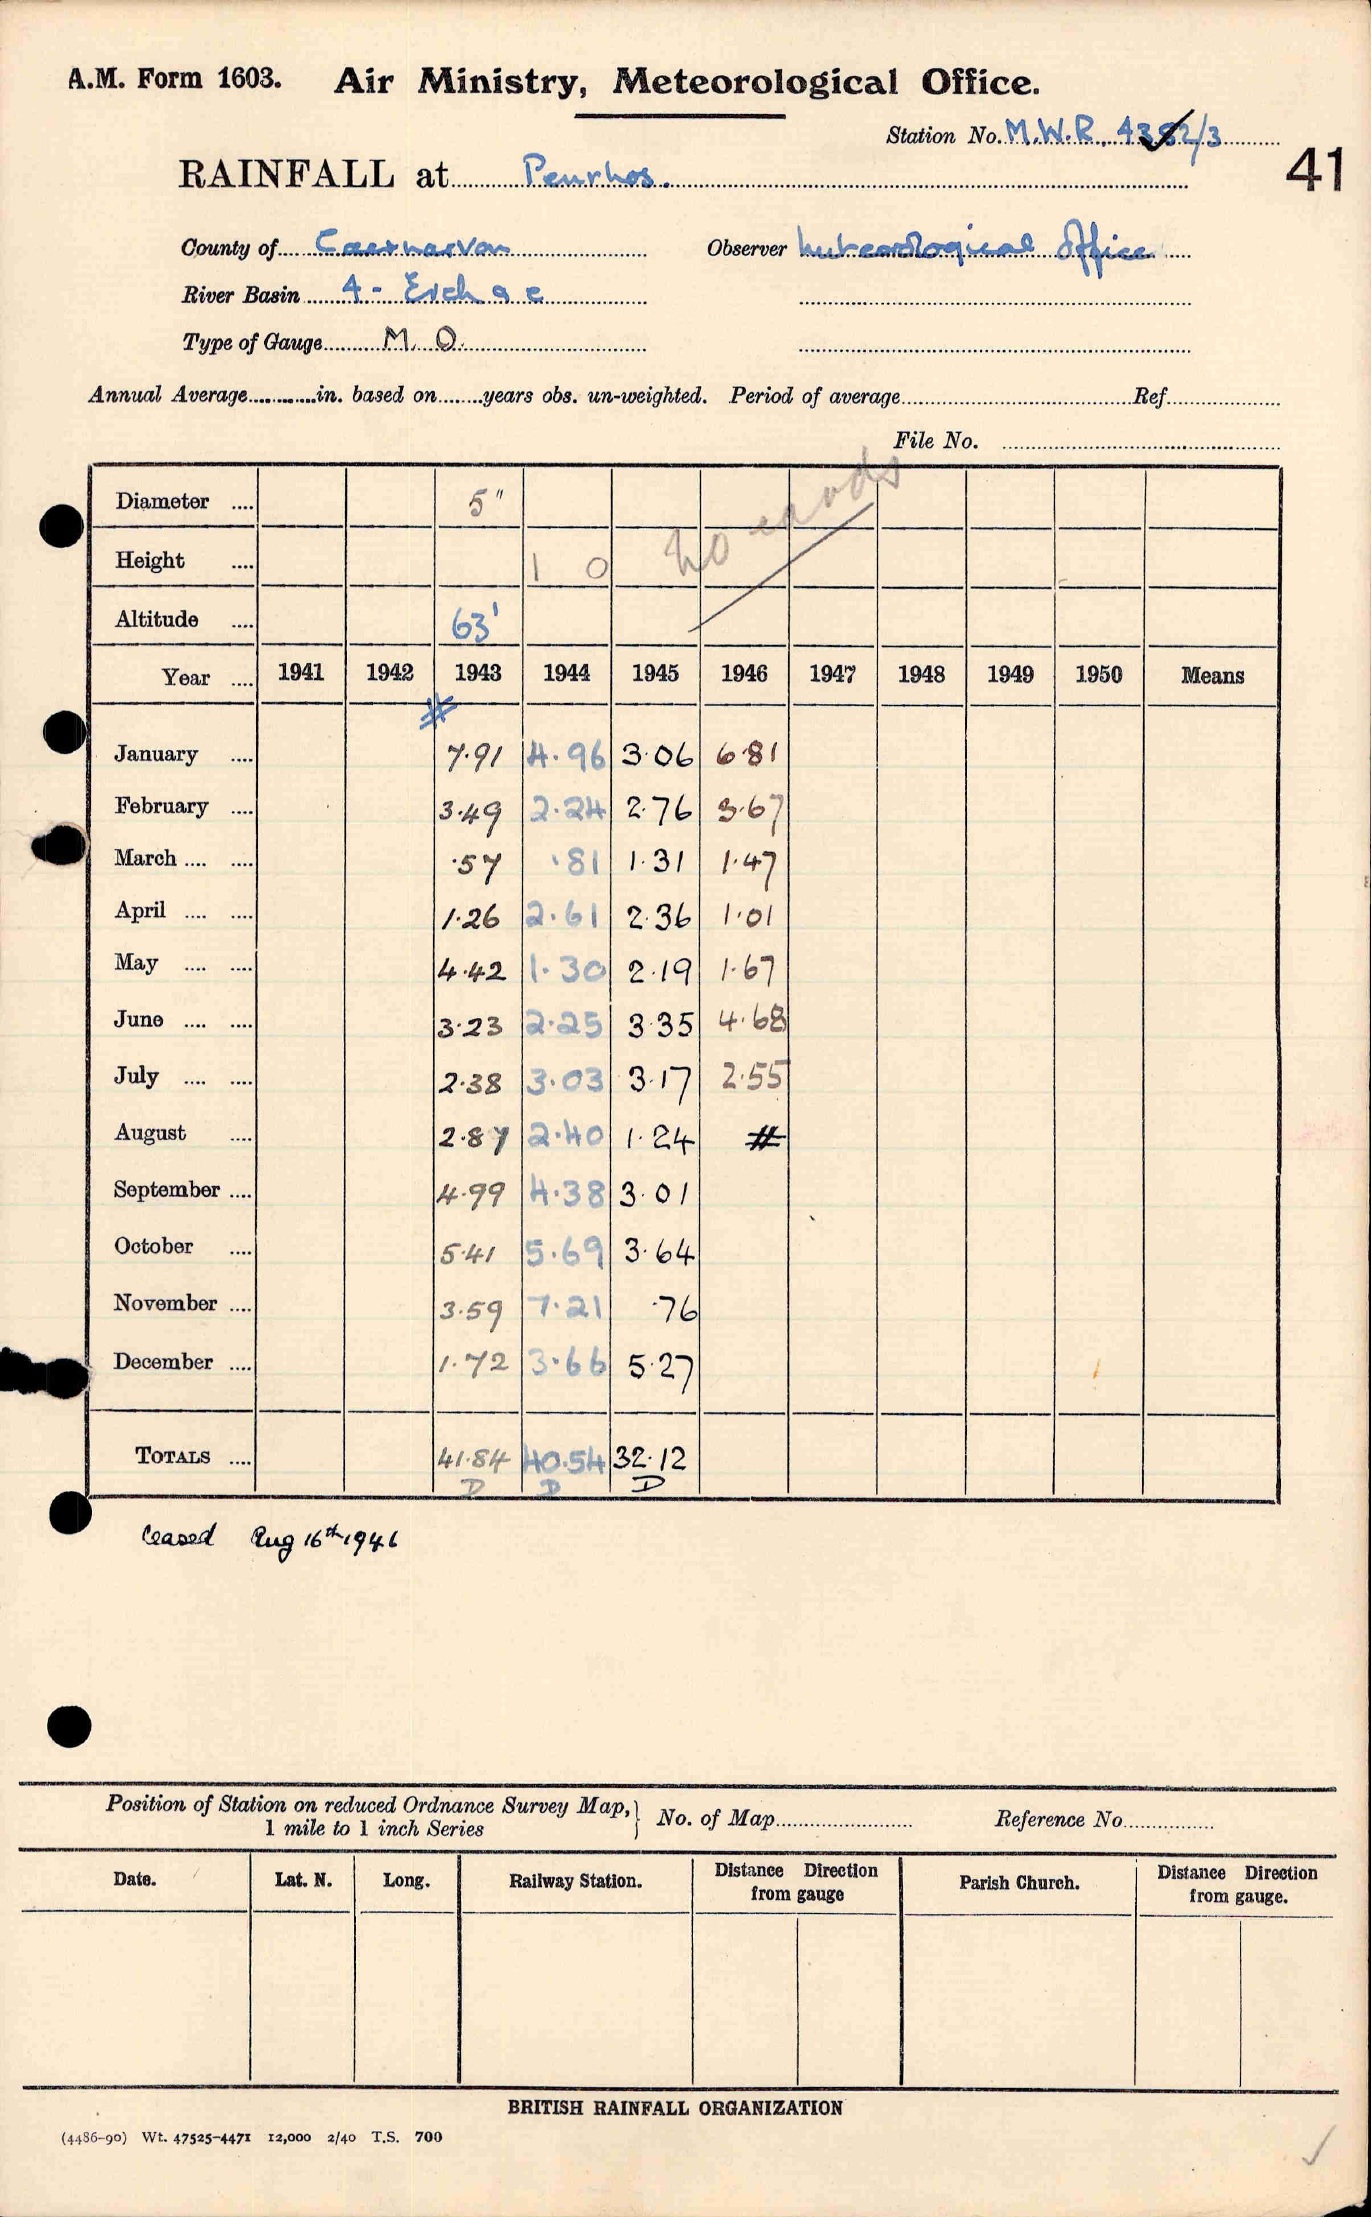 A.M. Form 1603. Air Ministry, Meteorological Office.
Station No. M.W.R. 4382/3
41
RAINFALL at Penrhos.
County of Caernarvon Observer Meteorological Office
River Basin 4 - Erch &c
Type of Gauge M. O.
Annual Average in. based on years obs. un-weighted. Period of average Ref.
File No.
no cards
Diameter .... 5"
Height .... 1 0
Altitude .... 63'
Year .... 1941 1942 1943 1944 1945 1946 1947 1948 1949 1950 Means
#
January .... 7.91 4.96 3.06 6.81
February .... 3.49 2.24 2.76 3.67
March .... .... .57 .81 1.31 1.47
April .... .... 1.26 2.61 2.36 1.01
May .... .... 4.42 1.30 2.19 1.67
June .... .... 3.23 2.25 3.35 4.68
July .... .... 2.38 3.03 3.17 2.55
August .... 2.87 2.40 1.24 #
September .... 4.99 4.38 3.01
October .... 5.41 5.69 3.64
November .... 3.59 7.21 .76
December .... 1.72 3.66 5.27
TOTALS .... 41.84 40.54 32.12
D D D
Ceased Aug 16th 1946
Position of Station on reduced Ordnance Survey Map, No. of Map Reference No.
1 mile to 1 inch Series
Date. Lat. N. Long. Railway Station. Distance Direction from gauge Parish Church. Distance Direction from gauge.
BRITISH RAINFALL ORGANIZATION
(4486-90) Wt. 47525-4471 12,000 2/40 T.S. 700